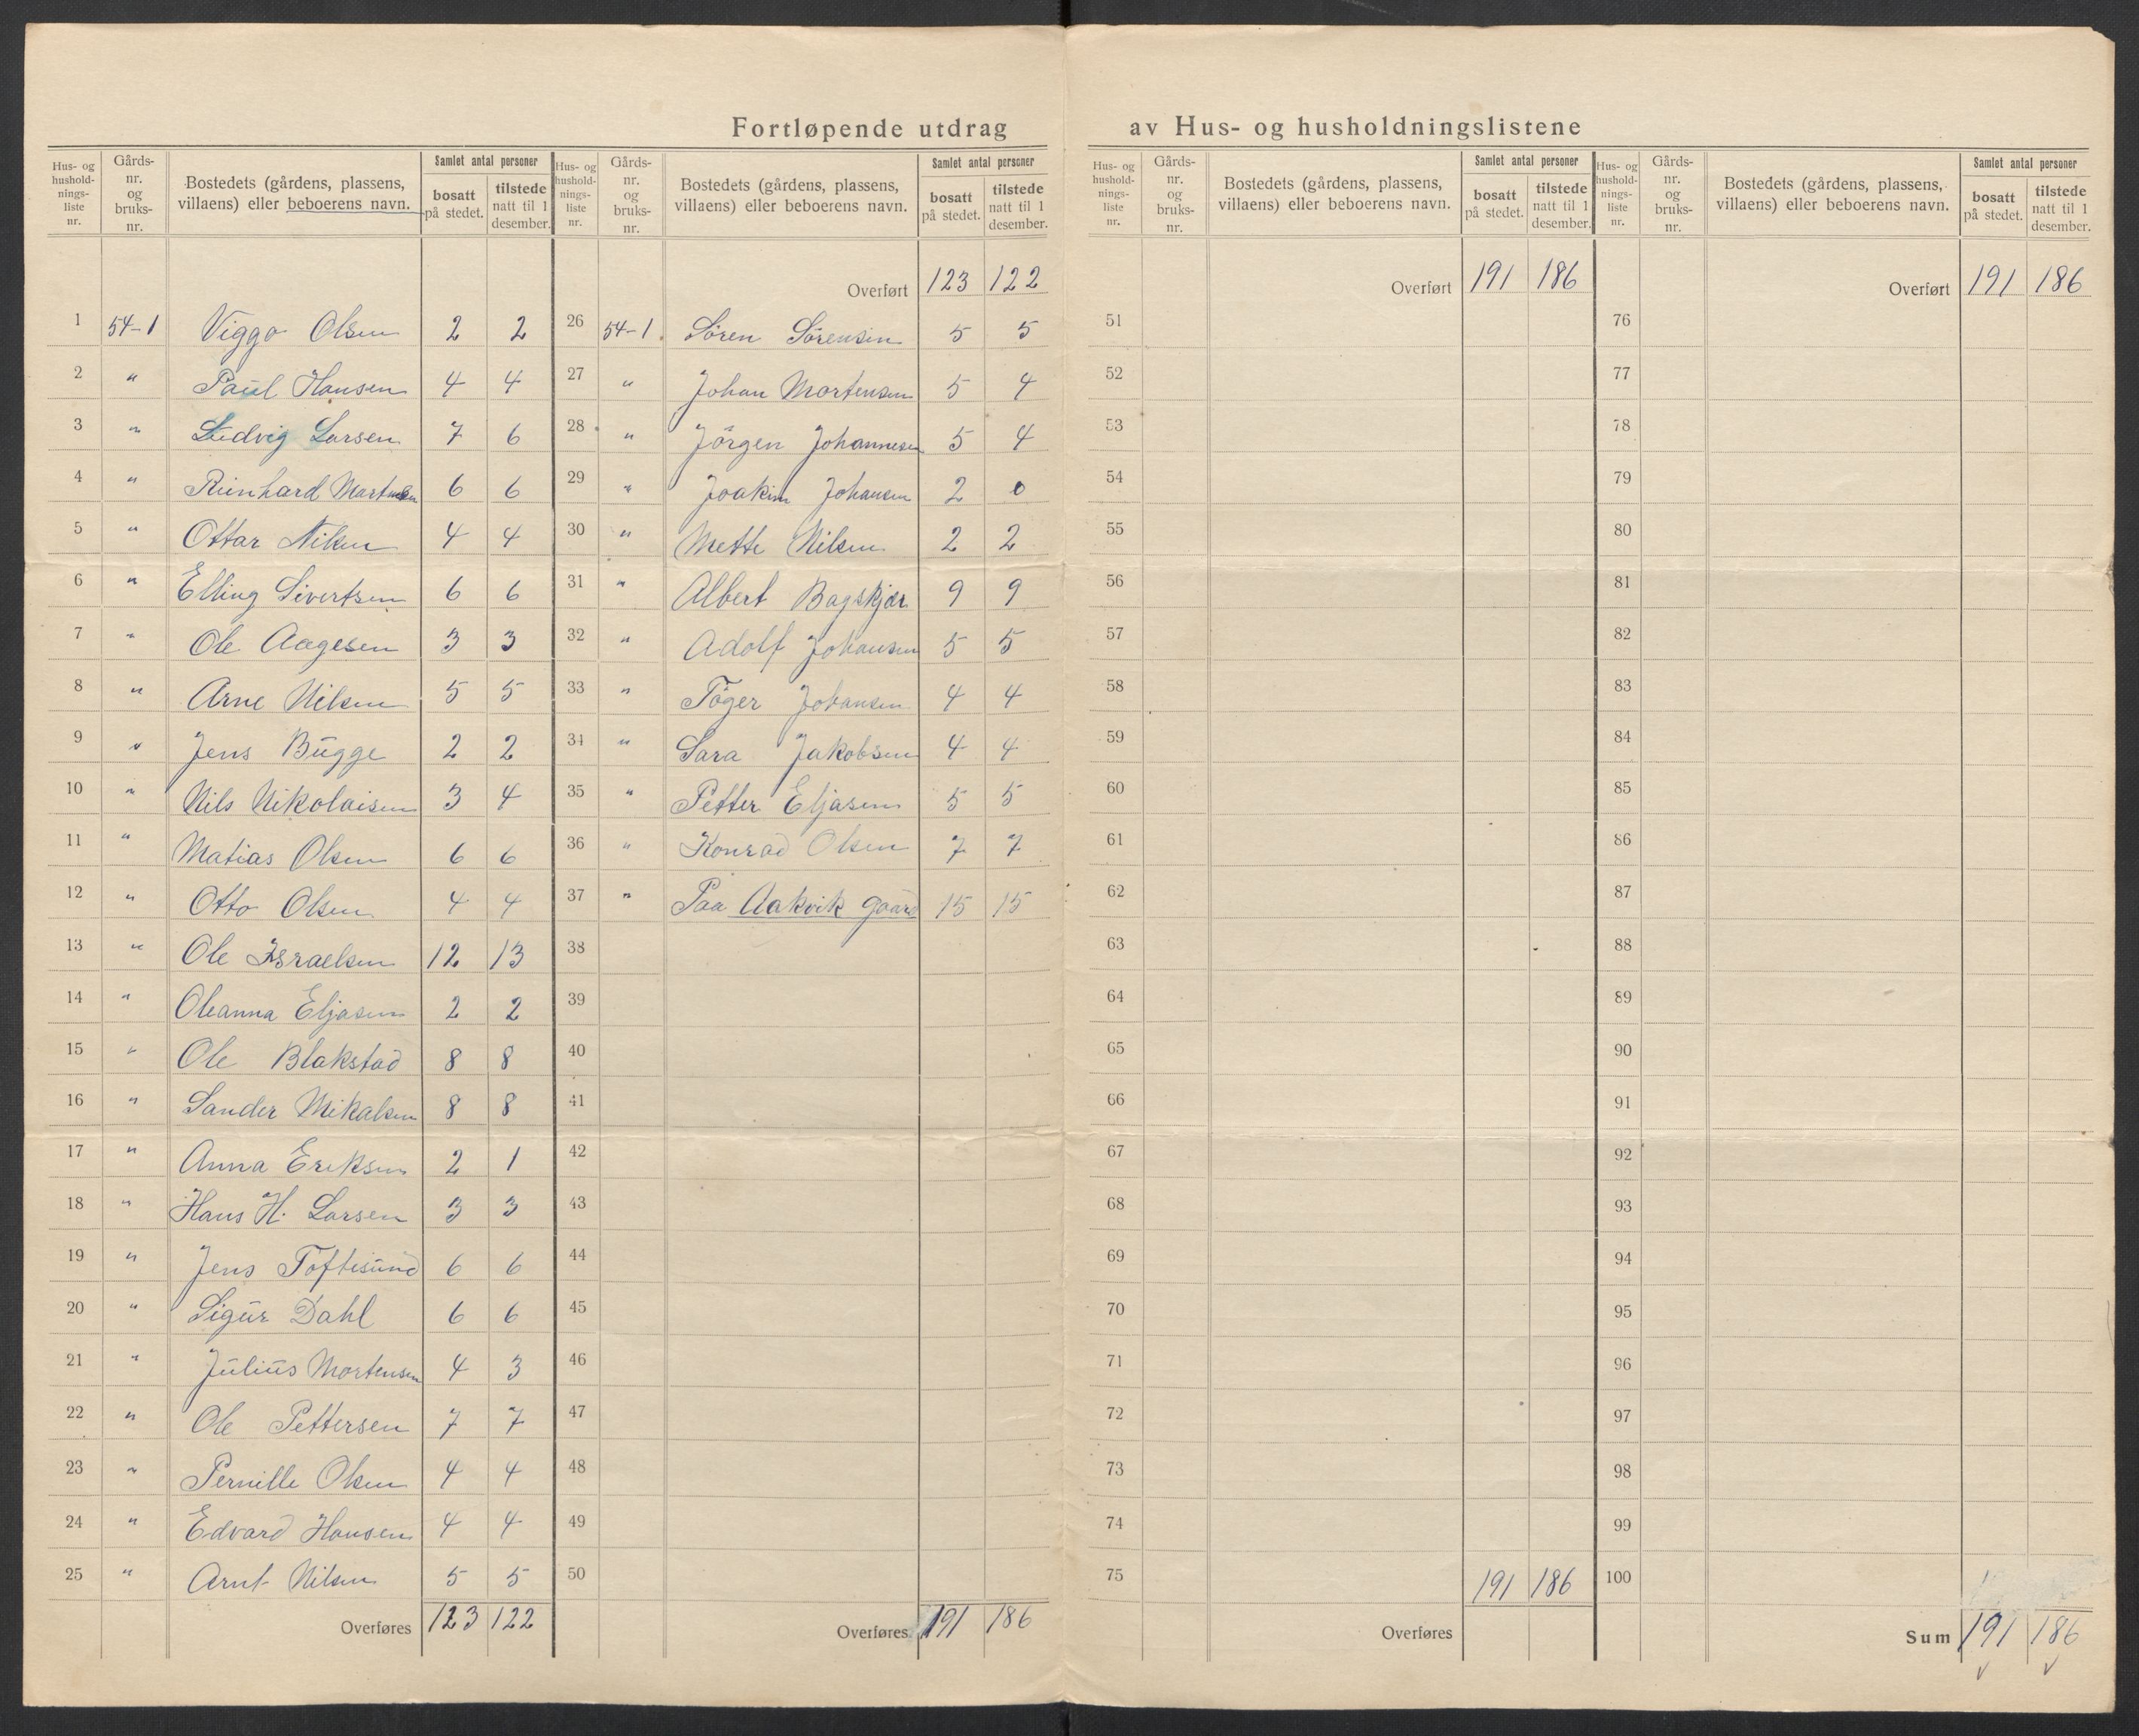 Fortløpende utdrag av Hus- og husholdningslistene
Hus- og hushold-nings-liste nr. Gårds-nr. og bruks-nr. Bostedets (gårdens, plassens, villaens) eller beboerens navn. Samlet antal personer bosatt på stedet. tilstede natt til 1 desember.
1 54-1 Viggo Olsen 2 2
2 " Paul Hansen 4 4
3 " Ludvig Larsen 7 6
4 " Reinhard Martinsen 6 6
5 " Ottar Nilsen 4 4
6 " Elling Sivertsen 6 6
7 " Ole Aagesen 3 3
8 " Arne Nilsen 5 5
9 " Jens Bugge 2 2
10 " Nils Nikolaisen 3 4
11 " Matias Olsen 6 6
12 " Otto Olsen 4 4
13 " Ole Israelsen 12 13
14 " Oleanna Eljasen 2 2
15 " Ole Blakstad 8 8
16 " Sander Mikalsen 8 8
17 " Anna Eriksen 2 1
18 " Hans H. Larsen 3 3
19 " Jens Toftesund 6 6
20 " Sigur Dahl 6 6
21 " Julius Mortensen 4 3
22 " Ole Pettersen 7 7
23 " Pernille Olsen 4 4
24 " Edvard Hansen 4 4
25 " Arnt Nilsen 5 5
Overføres 123 122
Hus- og hushold-nings-liste nr. Gårds-nr. og bruks-nr. Bostedets (gårdens, plassens, villaens) eller beboerens navn. Samlet antal personer bosatt på stedet. tilstede natt til 1 desember.
Overført 123 122
26 54-1. Sören Sörensen 5 5
27 " Johan Mortensen 5 4
28 " Jörgen Johannesen 5 4
29 " Joakim Johansen 2 0
30 " Mette Nilsen 2 2
31 " Albert Bogskjær 9 9
32 " Adolf Johansen 5 5
33 " Töger Johansen 4 4
34 " Sara Jakobsen 4 4
35 " Petter Eljasen 5 5
36 " Konrad Olsen 7 7
37 " Paa Aakvik gaard 15 15
38
39
40
41
42
43
44
45
46
47
48
49
50
Overføres 191 186
Hus- og hushold-nings-liste nr. Gårds-nr. og bruks-nr. Bostedets (gårdens, plassens, villaens) eller beboerens navn. Samlet antal personer bosatt på stedet. tilstede natt til 1 desember.
Overført 191 186
51
52
53
54
55
56
57
58
59
60
61
62
63
64
65
66
67
68
69
70
71
72
73
74
75 191 186
Overføres
Hus- og hushold-nings-liste nr. Gårds-nr. og bruks-nr. Bostedets (gårdens, plassens, villaens) eller beboerens navn. Samlet antal personer bosatt på stedet. tilstede natt til 1 desember.
Overført 191 186
76
77
78
79
80
81
82
83
84
85
86
87
88
89
90
91
92
93
94
95
96
97
98
99
100
Sum 191 186